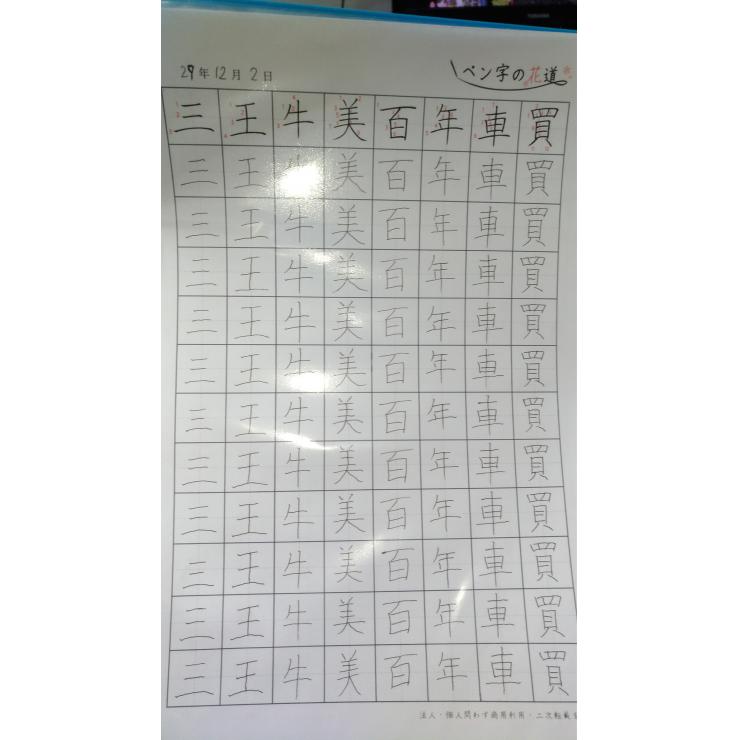 29年12月2日 ペン字の花道
三王牛美百年車買
三王牛美百年車買
三王牛美百年車買
三王牛美百年車買
三王牛美百年車買
三王牛美百年車買
三王牛美百年車買
三王牛美百年車買
三王牛美百年車買
三王牛美百年車買
三王牛美百年車買
三王牛美百年車買
法人・個人問わず商用利用・二次転載